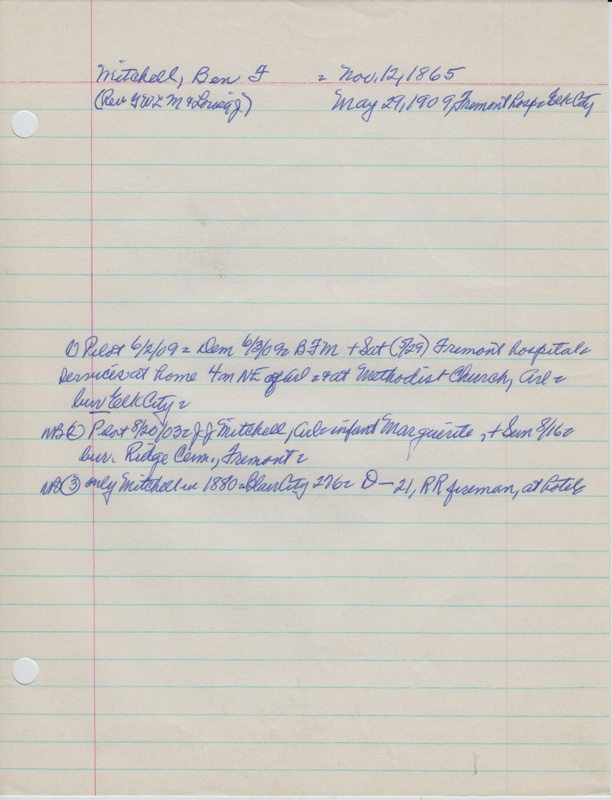 Mitchell, Ben F = Nov. 12, 1865
(Rev GWL M & Louisa J) May 29, 1909, Fremont hosp = Elk City
① Pilot 6/2/09 = Dem 6/3/09 = BFM + Sat (5/29) Fremont hospital =
services at home 4m NE of Arl = & at Methodist Church, Arl =
bur Elk City =
NB ② Pilot 8/20/03 = J J Mitchell, Arl = infant Marguerite, + Sun 8/16 =
bur. Ridge Cem., Fremont =
NB ③ only Mitchell in 1880 = Blair City 276 = O — 21, RR fireman, at hotel =